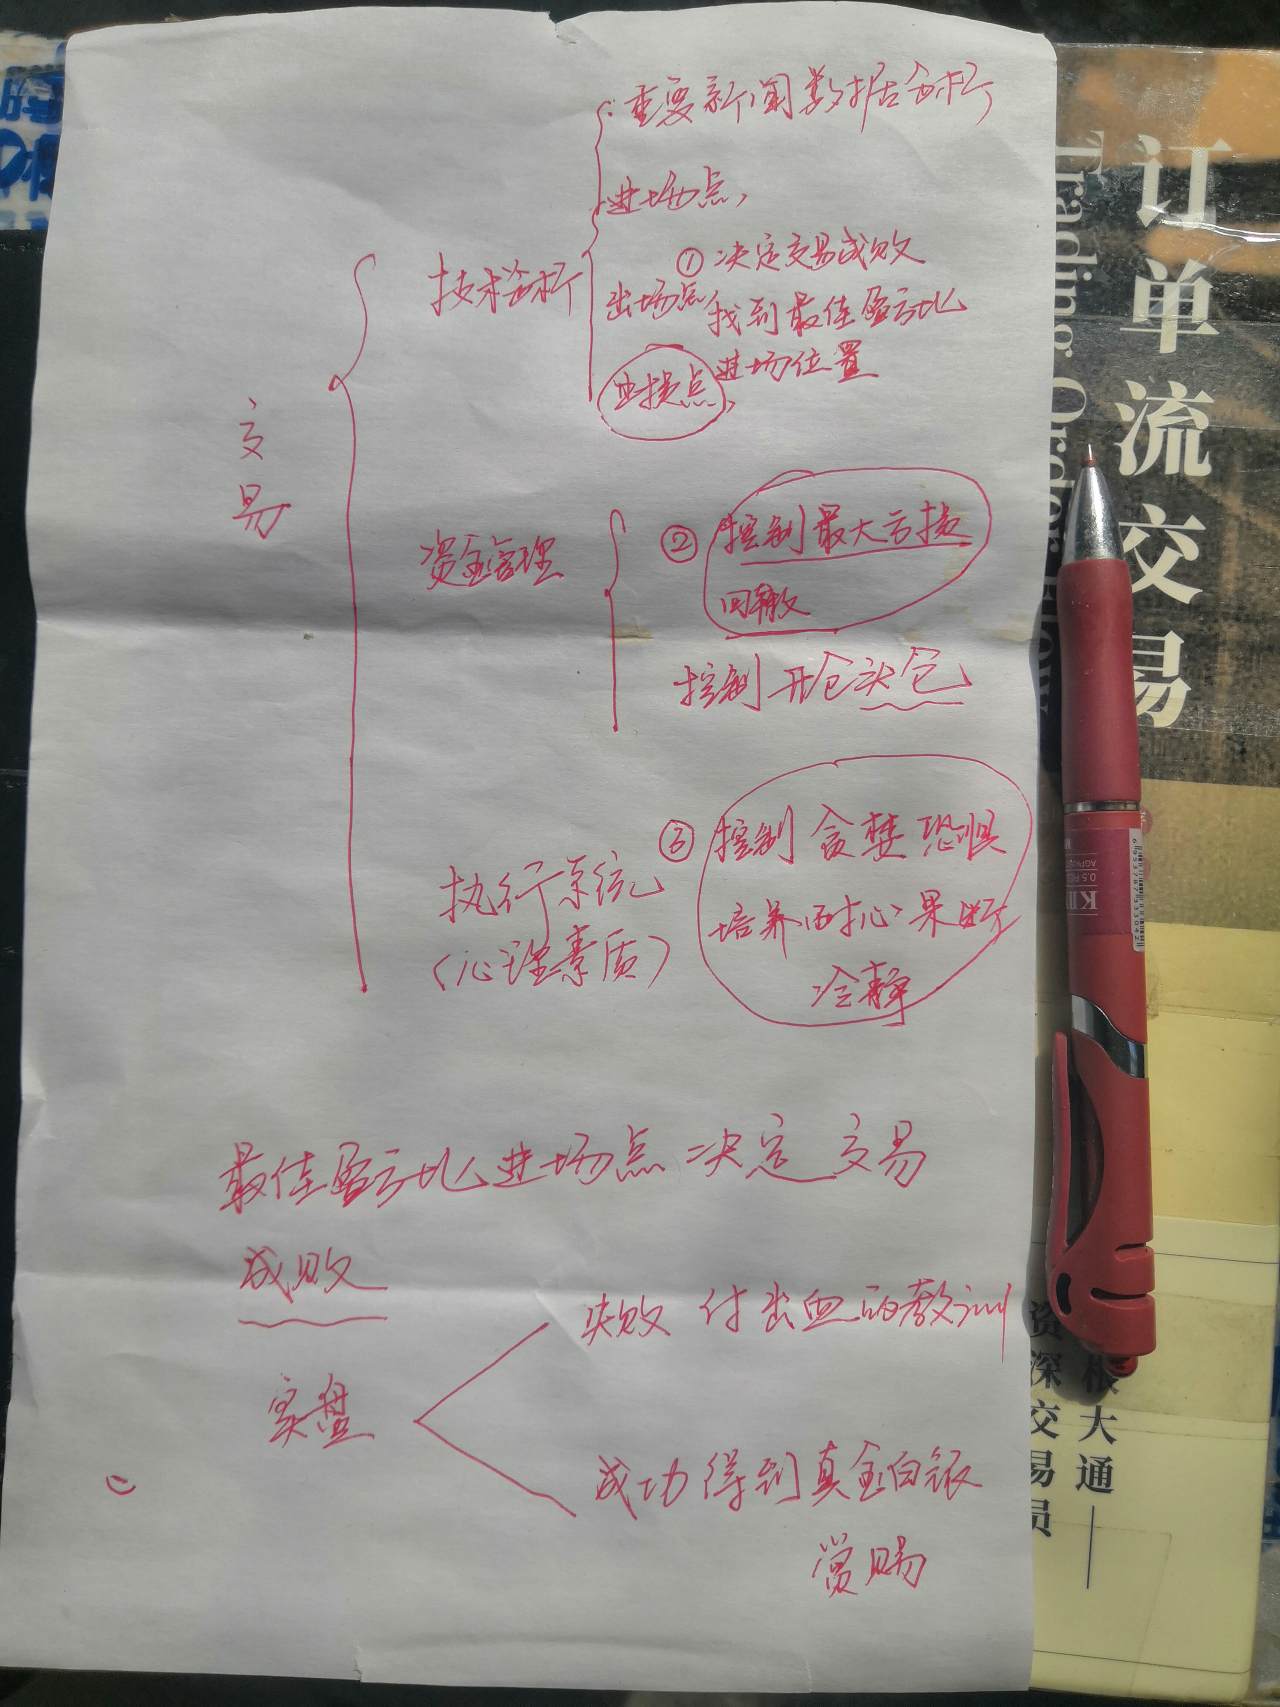 重要新闻数据分析
进场点,
技术分析
①决定交易成败
出场点 找到最佳盈亏比
止损点, 进场位置
交易
资金管理
② 控制最大亏损
回撤
控制开仓头仓
③ 控制贪婪恐惧
执行系统
培养耐心果断
(心理素质)
冷静
最佳盈亏比进场点决定交易
成败
失败 付出血的教训
实盘
成功得到真金白银
赏赐
订单流交易
Trading Order Flow
根大通——
资深交易员